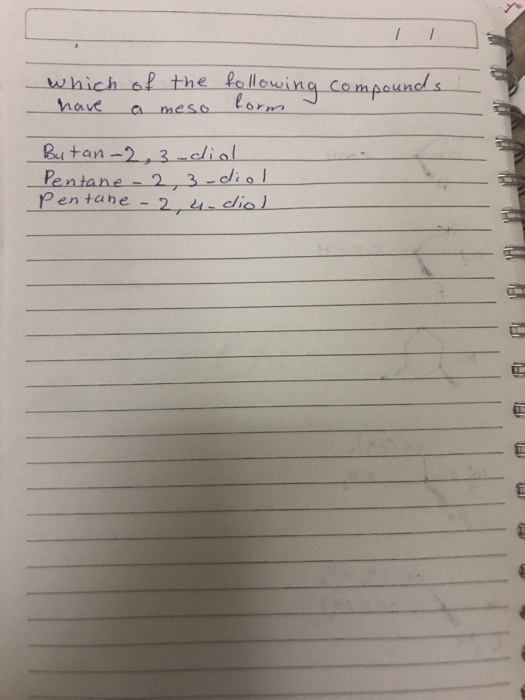 / /
which of the following compounds
have a meso form
Butan-2,3-diol
Pentane-2,3-diol
Pentane-2,4-diol